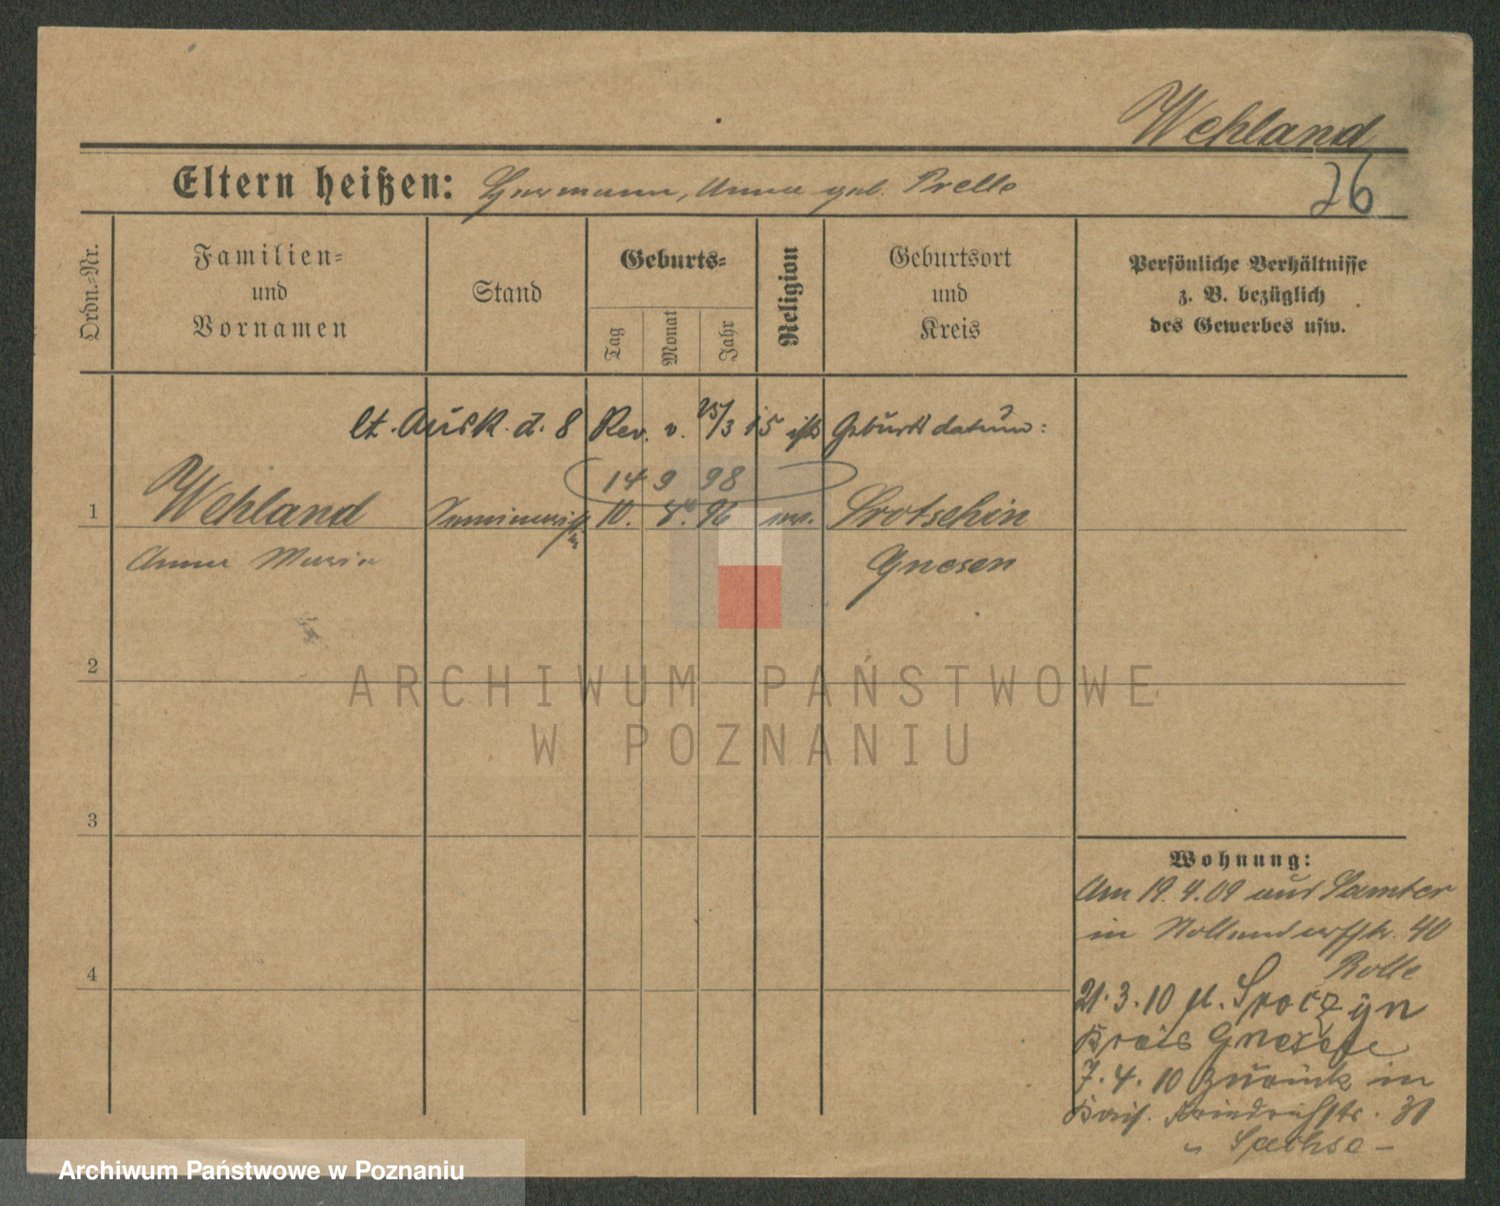 Wehland
26
Eltern heißen: Hermann, Anna geb. Prelle
Ordn.-Nr.
Familien-
und
Vornamen
Stand
Geburts-
Tag
Monat
Jahr
Religion
Geburtsort
und
Kreis
Persönliche Verhältnisse
z. B. bezüglich
des Gewerbes usw.
lt. Ausk. d. 8 Rev. v. 25/3 15 ist Geburtsdatum:
14 9 98
1 Wehland 10. 8. 96 Srotschin
Anna Maria Gnesen
2
3
4
Wohnung:
Am 19.4.09 aus Samter
in Nollendorfstr. 40
Rolle
21.3.10 Sroczyn
Kreis Gnesen
7.4.10 zurück in
Kais. Friedrichstr. 31
Sachse -
ARCHIWUM PAŃSTWOWE
W POZNANIU
Archiwum Państwowe w Poznaniu